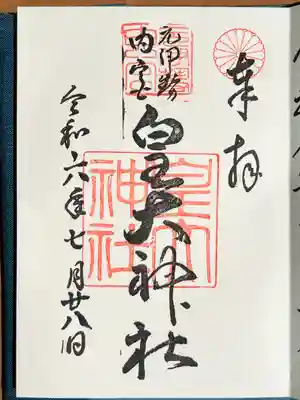 奉拝
元伊勢
内宮
皇大神社
令和六年七月廿八日
皇大神社